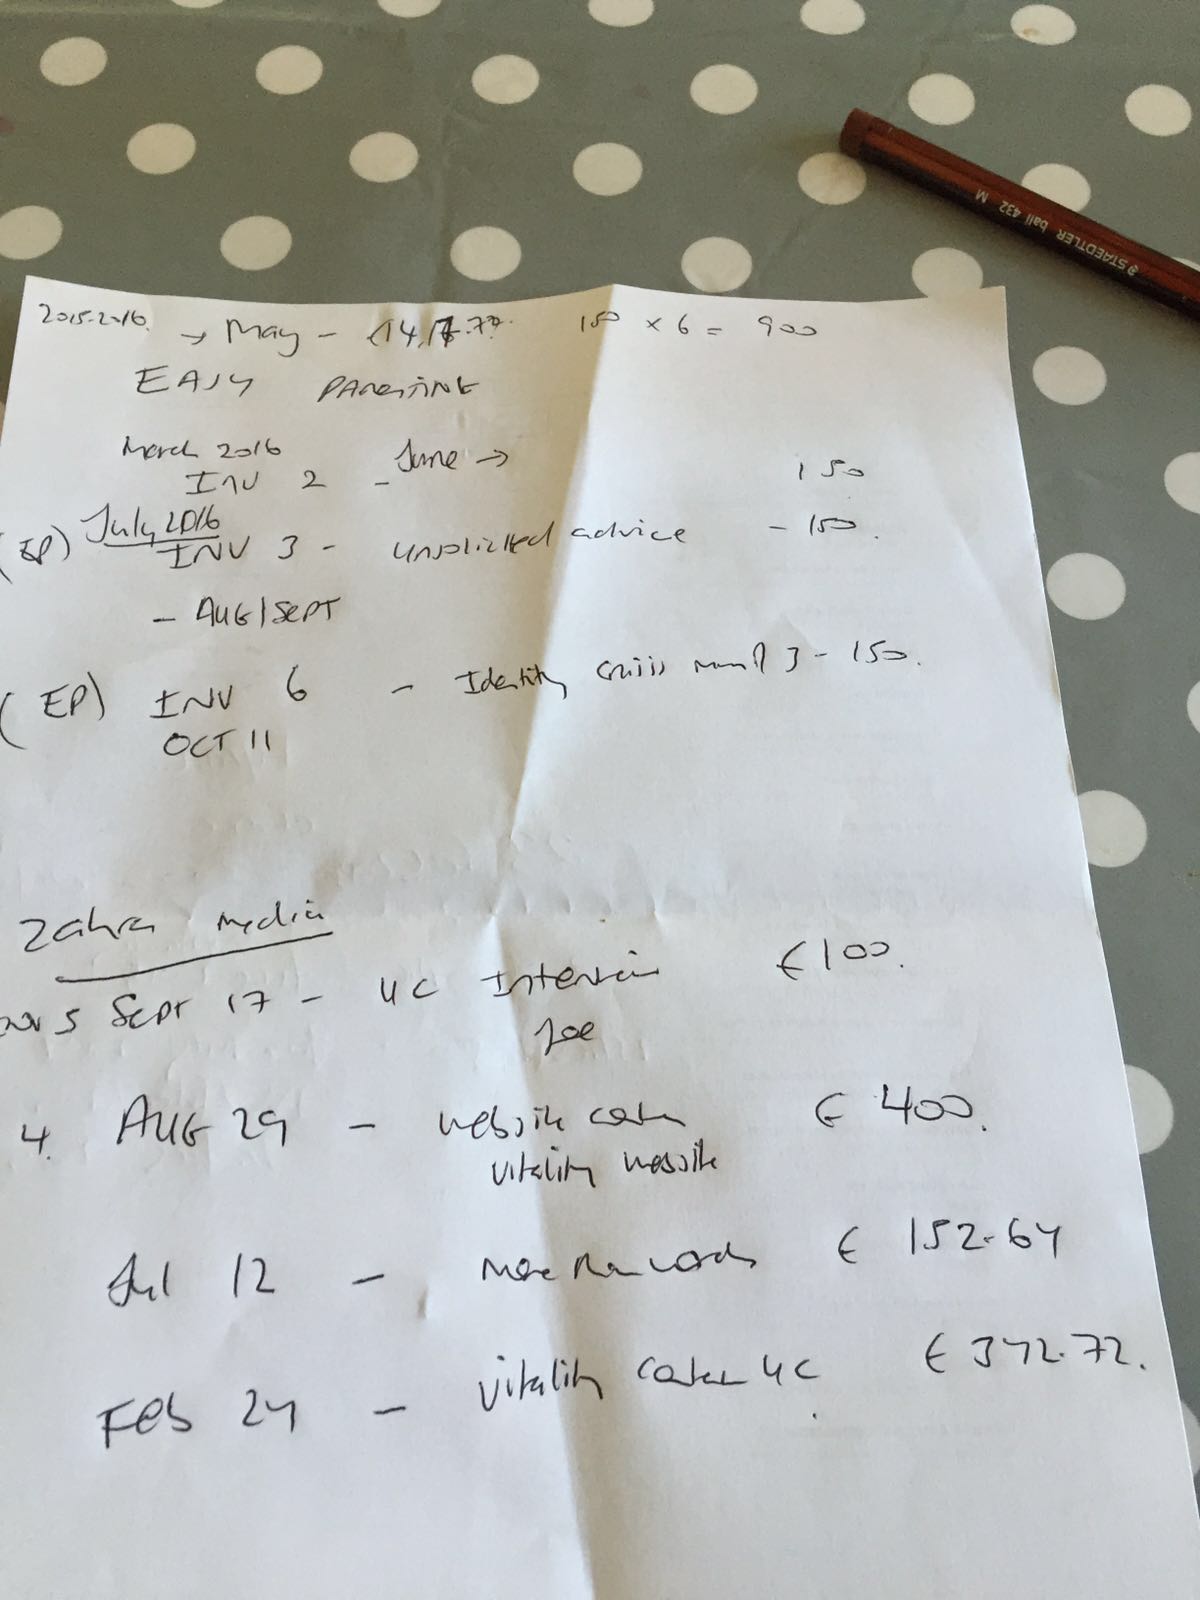 STAEDTLER ball 432 M
2015-2016. → May - 150 × 6 = 900
EASY PARENTING
March 2016
INV 2 - June → 150
(EP) July 2016
INV 3 - unsolicited advice - 150.
- AUG/SEPT
(EP) INV 6 - Identity crisis 3 - 150.
OCT 11
Zahra media
5 Sept 17 - 4C €100.
Joe
4. AUG 29 - website €400.
vitality website
Jul 12 - € 152.64
Feb 24 - vitality 4C € 342.72.